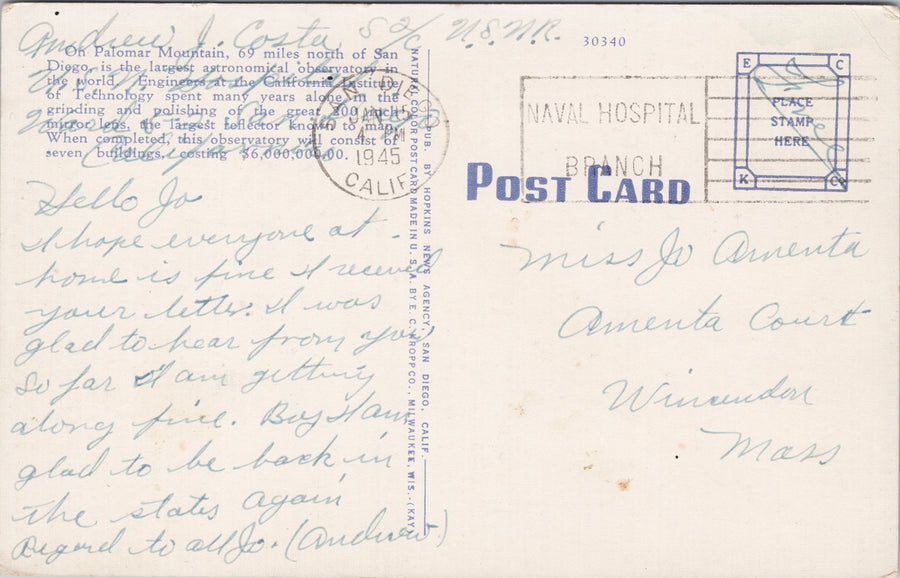 Andrew J. Costa S 2/c U.S.N.R.
On Palomar Mountain, 69 miles north of San
Diego, is the largest astronomical observatory in
the world. Engineers at the California Institute
of Technology spent many years alone in the
grinding and polishing of the great 200 inch
mirror lens, the largest reflector known to man.
When completed, this observatory will consist of
seven buildings, costing $6,000,000.00.
Hello Jo
I hope everyone at -
home is fine I received
your letter. I was
glad to hear from you,
so far I am getting
along fine. Boy I am
glad to be back in
the states again
Regard to all Jo. (Andrew)
NATURAL COLOR POST CARD MADE IN U. S. A. BY E. C. KROPP CO., MILWAUKEE, WIS.-(KAY)
PUB. BY HOPKINS NEWS AGENCY, SAN DIEGO, CALIF.
JAN 15
4 PM
1945
CALIF
30340
NAVAL HOSPITAL
BRANCH
E C
PLACE
STAMP
HERE
K Co
Free
POST CARD
Miss Jo Amenta
Amenta Court
Wincendon
Mass